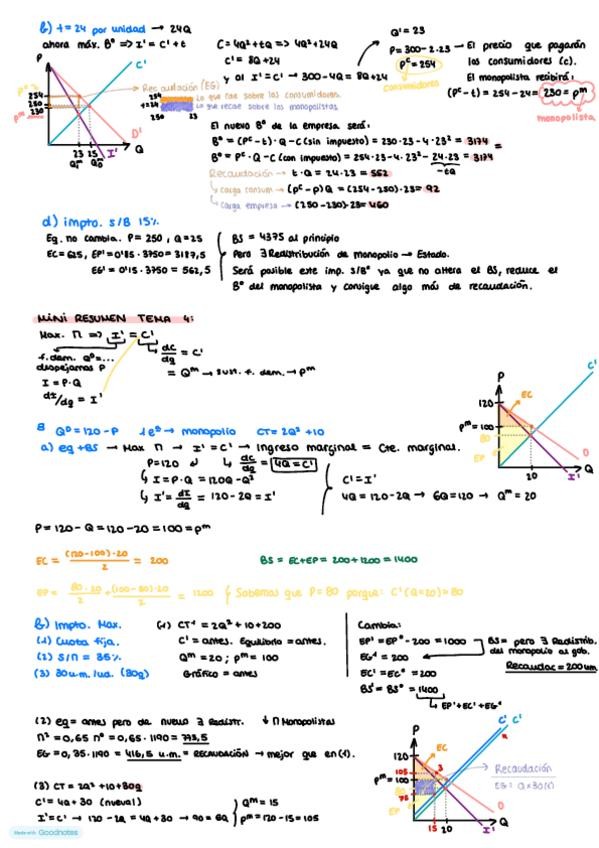 b) t=24 por unidad → 24Q
ahora máx. Bº => I' = C' + t
C = 4Q² + tQ => 4Q² + 24Q
C' = 8Q + 24
y al I' = C' → 300 - 4Q = 8Q + 24
Q' = 23
P = 300 - 2·23 →
Pᶜ = 254
consumidores
El precio que pagarán
los consumidores (c).
El monopolista recibirá:
(Pᶜ - t) = 254 - 24 = 230 = pᵐ
monopolista
P
C'
254
250
230
Pᵐ
23 25
Q
I'
D'
Recaudación (EG)
Lo que rae sobre los consumidores.
Lo que recae sobre los monopolistas
El nuevo Bº de la empresa será:
Bº = (Pᶜ - t) · Q - C (sin impuesto) = 230·23 - 4·23² = 3174
Bº = Pᶜ · Q - C (con impuesto) = 254·23 - 4·23² - 24·23 = 3174
-tQ
Recaudación → t · Q = 24·23 = 552
↳ carga consum → (Pᶜ - P)Q = (254 - 250)·23 = 92
↳ carga empresa → (250 - 230)·23 = 460
d) impto. S/B 15%
Eg. no cambia. P = 250, Q = 25
EC = 625, EP' = 0'85 · 3750 = 3187,5
EG' = 0'15 · 3750 = 562,5
BS = 4375 al principio
Pero ∃ Redistribución de monopolio → Estado.
Será posible este imp. s/Bº ya que no altera el BS, reduce el
Bº del monopolista y consigue algo más de recaudación.
MINI RESUMEN TEMA 4:
Max. Π => I' = C'
f. dem. Qᴰ = ...
despejamos P
I = P·Q
dI/dq = I'
dC/dq = C'
= Qᵐ → sust. f. dem. → pᵐ
8 Qᴰ = 120 - P 1 eª → monopolio CT = 2Q² + 10
a) eg + BS → Max Π → I' = C' → Ingreso marginal = Cte. marginal.
P = 120
↳ dC/dq = 4Q = C'
↳ I = P·Q = 120Q - Q²
↳ I' = dI/dQ = 120 - 2Q = I'
C' = I'
4Q = 120 - 2Q → 6Q = 120 → Qᵐ = 20
P
120
pᵐ = 100
80
EP
EC
C'
20
D
Q
I'
P = 120 - Q = 120 - 20 = 100 = pᵐ
EC = (120-100)·20 / 2 = 200
BS = EC + EP = 200 + 1200 = 1400
EP = 80·20 / 2 + (100-80)·20 / 2 = 1200 { Sabemos que P = 80 porque: C'(Q=20) = 80
b) Impto. Max.
(1) Cuota fija.
(2) S/Π = 35%
(3) 30 u.m./ud. (30q)
(1) CT¹ = 2Q² + 10 + 200
C' = antes. Equilibrio = antes.
Qᵐ = 20; pᵐ = 100
Gráfico = antes
Cambia:
EP' = EPº - 200 = 1000
EG¹ = 200
EC' = ECº = 200
BS' = BSº = 1400
↳ EP' + EC' + EG'
BS = pero ∃ Redistrib.
del monopolio al gob.
Recaudac = 200 um
(2) eg = antes pero de nuevo ∃ Redistr. ↓ Π Monopolistas
Π² = 0,65 Πº = 0,65 · 1190 = 773,5
EG = 0,35·1190 = 416,5 u.m. = RECAUDACIÓN → mejor que en (1).
(3) CT = 2Q² + 10 + 30q
C' = 4Q + 30 (nueva!)
I' = C' → 120 - 2Q = 4Q + 30 → 90 = 6Q
Qᵐ = 15
pᵐ = 120 - 15 = 105
P
120
105
pᵐ = 100
80
75
EP
EC
3
C' C'
15 20
D
Q
I'
Recaudación
Made with Goodnotes